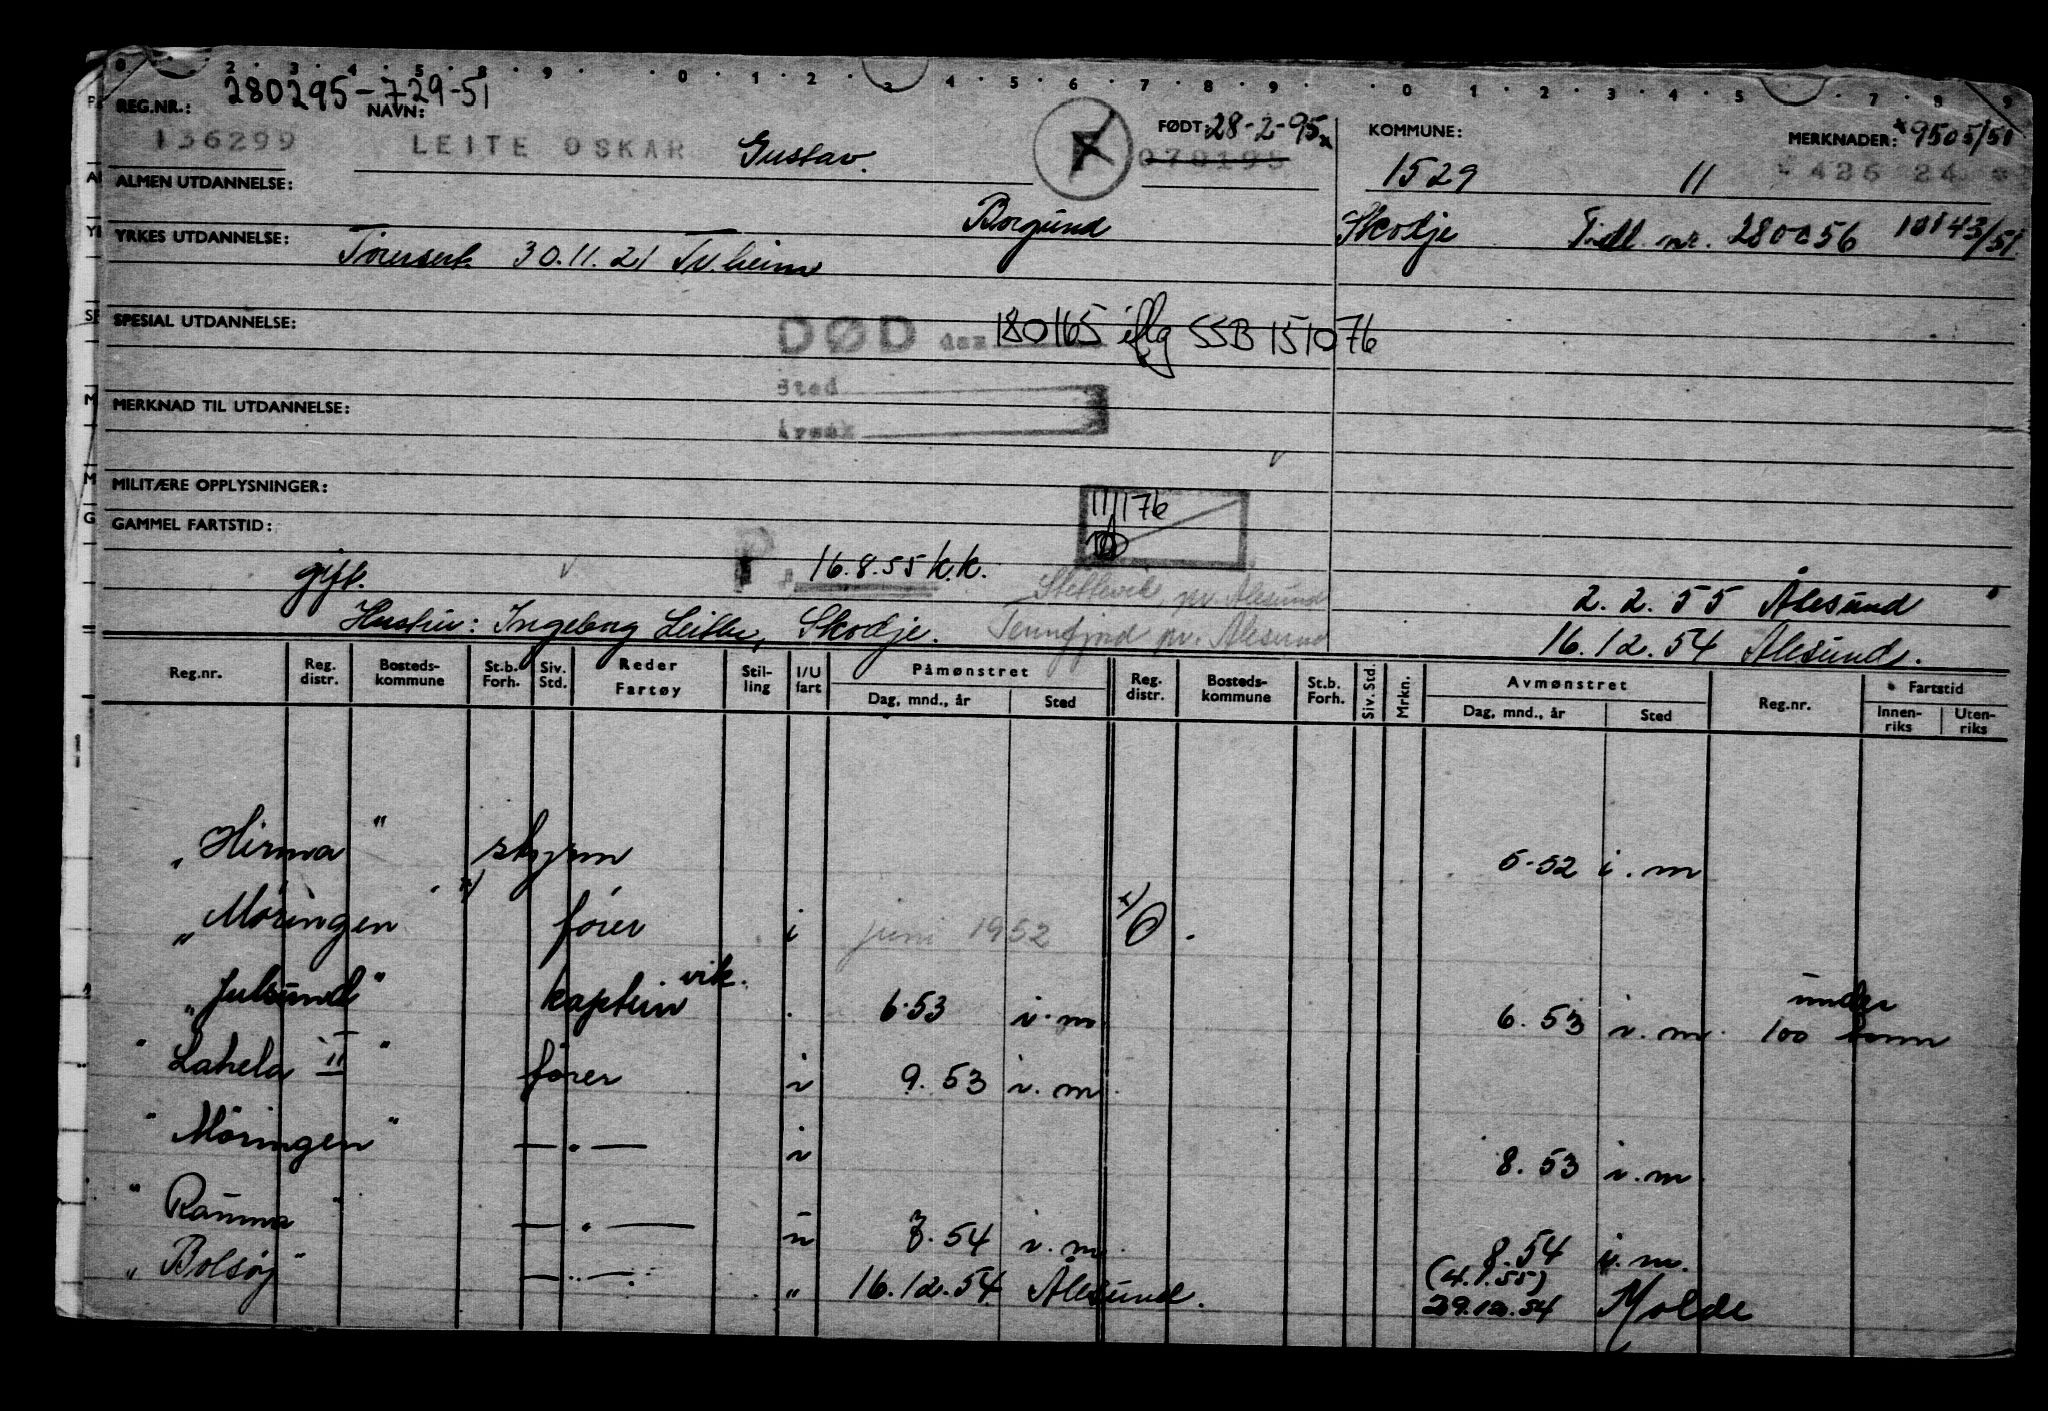 280295-729-51
REG.NR.: NAVN: FØDT: 28-2-95x KOMMUNE: MERKNADER: x9505/51
136299 LEITE OSKAR Gustav. 070195 1529 11 426 24
ALMEN UTDANNELSE:
Borgund Skodje Tidl. nr. 280056 10143/51
YRKES UTDANNELSE: 30.11.21 Tr.heim
SPESIAL UTDANNELSE: DØD den 180165 iflg SSB 151076
Sted
MERKNAD TIL UTDANNELSE: Årsak
MILITÆRE OPPLYSNINGER: 11/176
GAMMEL FARTSTID:
gift. 16.8.55 k.k. pr. Ålesund 2.2.55 Ålesund
Hustru: Ingeborg Leite, Skodje. Tennfjord pr. Ålesund 16.12.54 Ålesund.
Reg.nr. Reg. distr. Bosteds-kommune St.b. Forh. Siv. Std. Reder Fartøy Stil-ling I/U fart Påmønstret Dag, mnd., år Sted Reg. distr. Bosteds-kommune St.b. Forh. Siv. Std. Mrkn. Avmønstret Dag, mnd., år Sted Reg.nr. Fartstid Innen-riks Uten-riks
"Hirma" styrm 5-52 i.m
"Møringen" x) fører i juni 1952 x) .
"Julsund" kaptein vik. 6.53 i.m 6.53 i.m. under 100 tonn
"Lahela II" fører i 9.53 i.m.
"Møringen" —"— i 8.53 i.m
"Rauma" —"— u 7.54 i.m. 8.54 i.m.
(4.1.55)
"Bolsøy" —"— " 16.12.54 Ålesund. 29.12.54 Molde